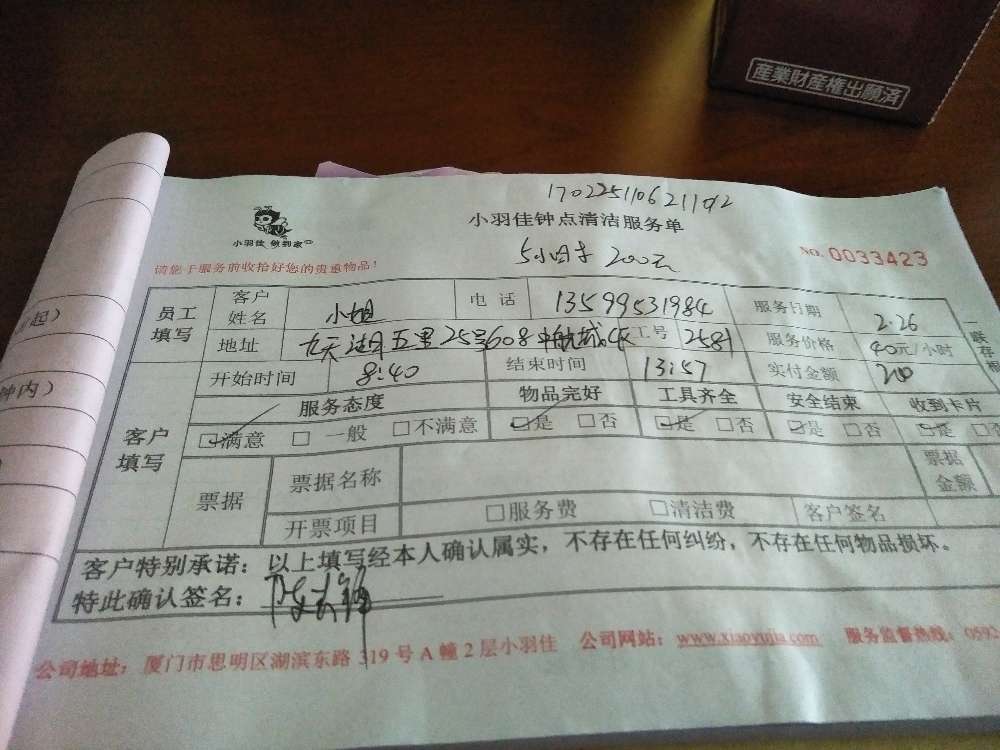 産業財産権出願済
170225110621192
小羽佳 做到家
小羽佳钟点清洁服务单
5小时 200元
NO. 0033423
请您于服务前收拾好您的贵重物品！
起）
钟内）
员工填写 客户姓名 小姐 电话 13599531984 服务日期 2.26
地址 五里25号608 工号 2581 服务价格 40元/小时
开始时间 8:40 结束时间 13:57 实付金额 200
客户填写 服务态度 物品完好 工具齐全 安全结束 收到卡片
☑满意 □一般 □不满意 ☑是 □否 ☑是 □否 ☑是 □否 ☑是 □否
票据 票据名称 票据金额
开票项目 □服务费 □清洁费 客户签名
客户特别承诺：以上填写经本人确认属实，不存在任何纠纷，不存在任何物品损坏。
特此确认签名：
公司地址：厦门市思明区湖滨东路 319 号 A 幢 2 层小羽佳 公司网站：www.xiaoyujia.com 服务监督热线：0592